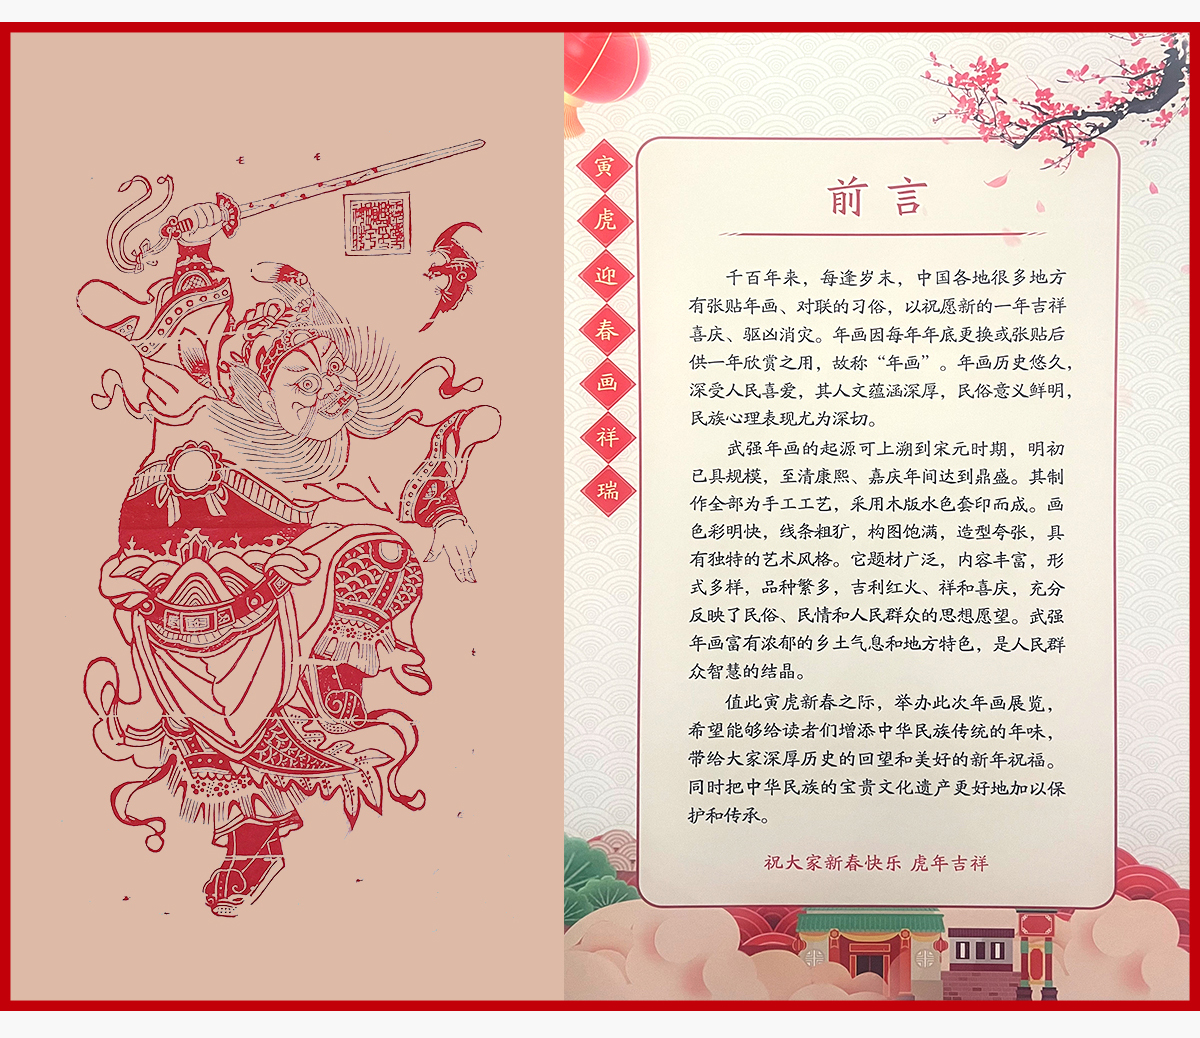 寅虎迎春画祥瑞
前言
千百年来，每逢岁末，中国各地很多地方
有张贴年画、对联的习俗，以祝愿新的一年吉祥
喜庆、驱凶消灾。年画因每年年底更换或张贴后
供一年欣赏之用，故称“年画”。年画历史悠久，
深受人民喜爱，其人文蕴涵深厚，民俗意义鲜明，
民族心理表现尤为深切。
武强年画的起源可上溯到宋元时期，明初
已具规模，至清康熙、嘉庆年间达到鼎盛。其制
作全部为手工工艺，采用木版水色套印而成。画
色彩明快，线条粗犷，构图饱满，造型夸张，具
有独特的艺术风格。它题材广泛，内容丰富，形
式多样，品种繁多，吉利红火、祥和喜庆，充分
反映了民俗、民情和人民群众的思想愿望。武强
年画富有浓郁的乡土气息和地方特色，是人民群
众智慧的结晶。
值此寅虎新春之际，举办此次年画展览，
希望能够给读者们增添中华民族传统的年味，
带给大家深厚历史的回望和美好的新年祝福。
同时把中华民族的宝贵文化遗产更好地加以保
护和传承。
祝大家新春快乐 虎年吉祥